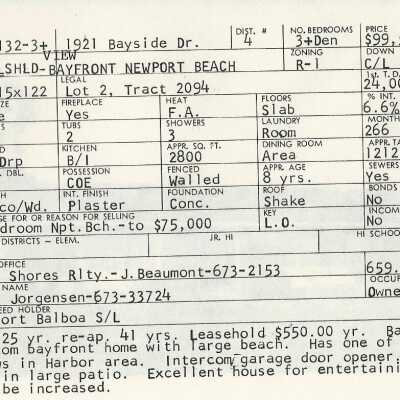 DIST. # NO. BEDROOMS PRICE
132-3+ 1921 Bayside Dr. 4 3+Den $99,
VIEW ZONING DOWN
LSHLD-BAYFRONT NEWPORT BEACH R-1 C/L
LEGAL 1st. T.D.
15x122 Lot 2, Tract 2094 24,00
ZE FIREPLACE HEAT FLOORS % INT.
Yes F.A. Slab 6.6%
TUBS SHOWERS LAUNDRY MONTH
2 3 Room 266
KITCHEN APPR. SQ. FT. DINING ROOM APPR. TA
Drp B/I 2800 Area 1212
. DBL. POSSESSION FENCED APPR. AGE SEWERS
COE Walled 8 yrs. Yes
INT. FINISH FOUNDATION ROOF BONDS
co/Wd. Plaster Conc. Shake No
GE FOR OR REASON FOR SELLING KEY INCOM
droom Npt.Bch.-to $75,000 L.O. No
DISTRICTS - ELEM. JR. HI HI SCHOOL
OFFICE
Shores Rlty.-J.Beaumont-673-2153 659.
NAME OCCUP
Jorgensen-673-33724 Owne
EED HOLDER
ort Balboa S/L
25 yr. re-ap. 41 yrs. Leasehold $550.00 yr. Ba
om bayfront home with large beach. Has one of
ws in Harbor area. Intercom, garage door opener.
in large patio. Excellent house for entertain
be increased.